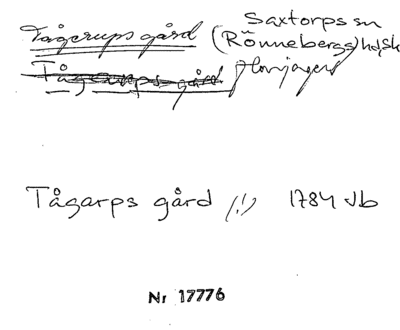 Saxtorps sn
Tågerups gård (Rönnebergs) hd, Sk
Tågarps gård
Tågarps gård (!) 1784 Jb
Nr 17776